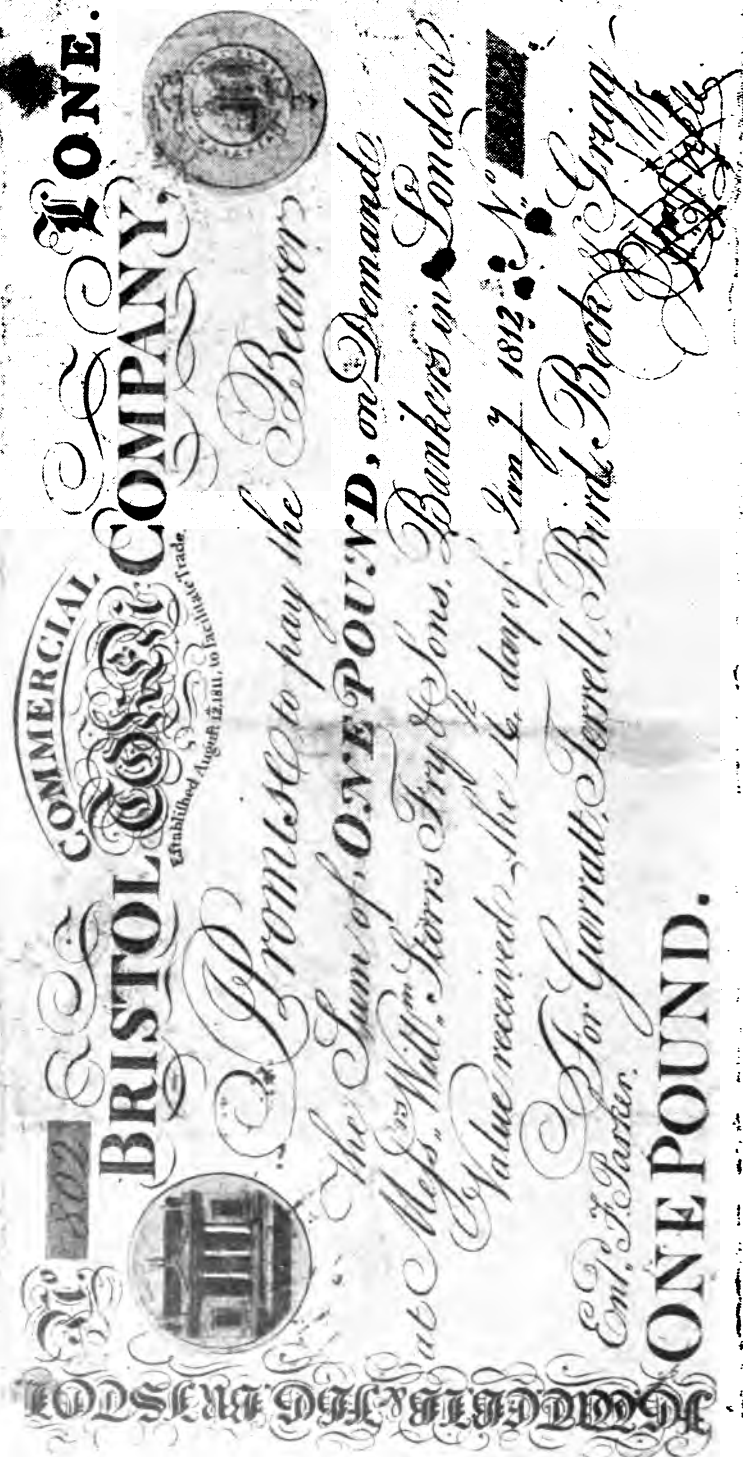 No. 802 £ ONE.
COMMERCIAL
BRISTOL TOKEN COMPANY,
Eſtabliſhed Auguſt 12. 1811. to facilitate Trade.
I Promise to pay the Bearer
the Sum of ONE POUND, on Demand
at Meſs.rs Will.m Storrs Fry & Sons, Bankers in London.
Value received the 16th day of Jan y 1812 N.o
For Garratt, Terrell, Bird, Beck & Grigg
Ent.d F. Parker.
ONE POUND.